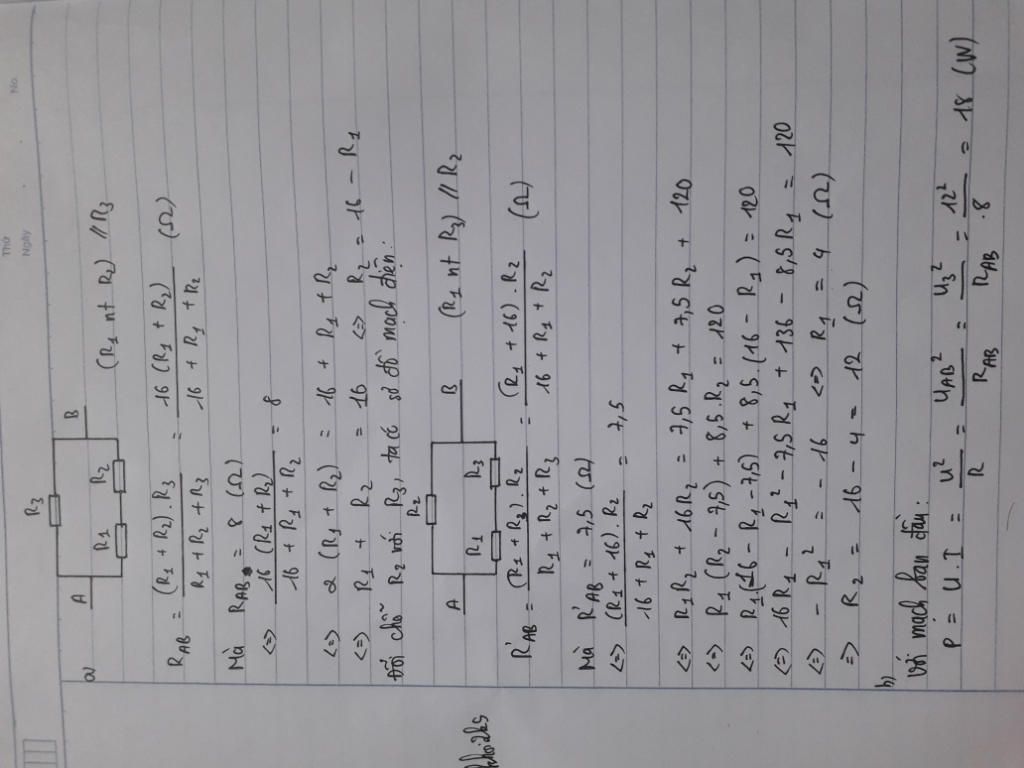 Thứ
Ngày
No.
a)
R3
A
R1
R2
B
(R1 nt R2) // R3
RAB = (R1 + R2).R3 / R1 + R2 + R3 = 16(R1 + R2) / 16 + R1 + R2 (Ω)
Mà RAB = 8 (Ω)
<=> 16(R1 + R2) / 16 + R1 + R2 = 8
<=> 2(R1 + R2) = 16 + R1 + R2
<=> R1 + R2 = 16 <=> R2 = 16 - R1
Đổi chỗ R2 với R3, ta có sơ đồ mạch điện:
R2
A
R1
R3
B
(R1 nt R3) // R2
R'AB = (R1 + R3).R2 / R1 + R2 + R3 = (R1 + 16).R2 / 16 + R1 + R2 (Ω)
Mà R'AB = 7,5 (Ω)
<=> (R1 + 16).R2 / 16 + R1 + R2 = 7,5
<=> R1R2 + 16R2 = 7,5R1 + 7,5R2 + 120
<=> R1(R2 - 7,5) + 8,5.R2 = 120
<=> R1(16 - R1 - 7,5) + 8,5.(16 - R1) = 120
<=> 16R1 - R1² - 7,5R1 + 136 - 8,5R1 = 120
<=> - R1² = - 16 <=> R1 = 4 (Ω)
=> R2 = 16 - 4 = 12 (Ω)
b)
Với mạch ban đầu:
P = U.I = U² / R = UAB² / RAB = U3² / RAB = 12² / 8 = 18 (W)